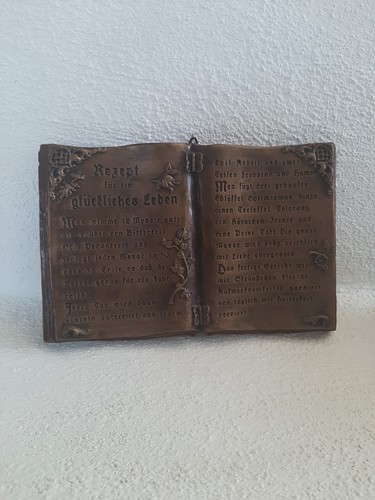 Rezept
für ein
glückliches Leben
Man nimmt 12 Monate, putzt
sie sauber von Bitterkeit,
Geiz, Pedanterie und
zerlegt jeden Monat in
30 Teile, so daß der
Vorrat genau für ein Jahr
reicht.
Jeder Tag wird dann
einzeln zubereitet aus einem
Teil Arbeit und zwei
Teilen Frohsinn und Humor.
Man fügt drei gehäufte
Eßlöffel Optimismus hinzu,
einen Teelöffel Toleranz,
ein Körnchen Ironie und
eine Prise Takt. Die ganze
Masse wird sehr reichlich
mit Liebe übergossen.
Das fertige Gericht wird
mit Sträußchen kleiner
Aufmerksamkeiten garniert
und täglich mit Heiterkeit
serviert.